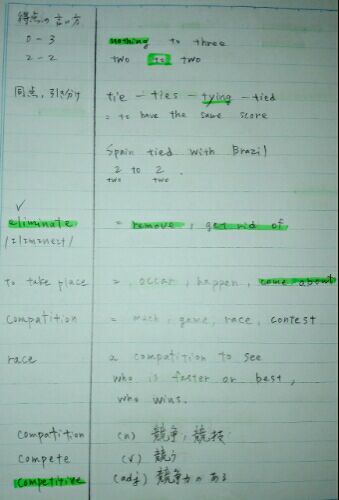 得点の言い方
0 - 3 nothing to three
2 - 2 two to two
同点, 引き分け tie - ties - tying - tied
= to have the same score
Spain tied with Brazil
2 to 2 .
two two
eliminate = remove , get rid of
to take place = , occar , happen , come about
Compatition = mach , game , race , contest
race a compatition to see
who is faster or best ,
who wins .
Compatition (n) 競争 , 競技
Compete (v) 競う
Competitive (adj) 競争力のある